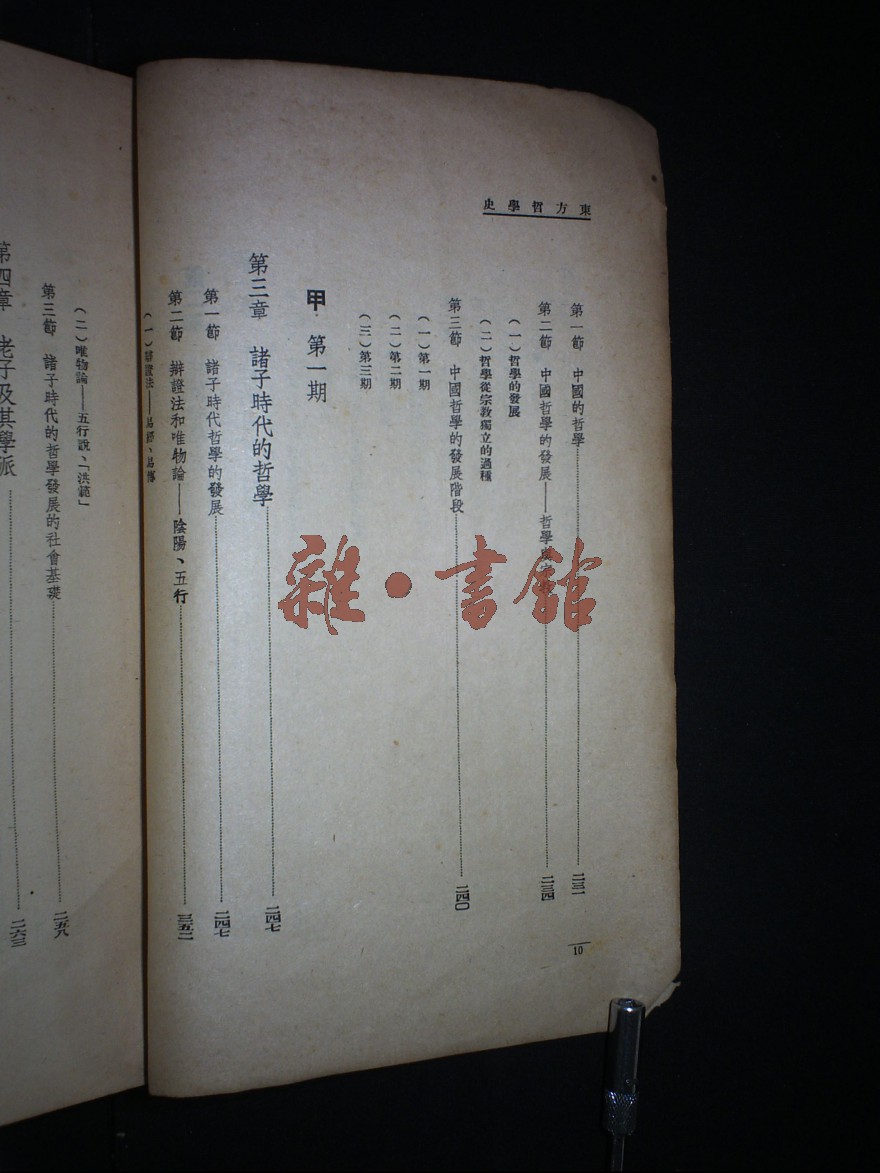 東方哲學史
第一節　中國的哲學……二三一
第二節　中國哲學的發展——哲學與……二三四
（一）哲學的發展
（二）哲學從宗教獨立的過種
第三節　中國哲學的發展階段……二四〇
（一）第一期
（二）第二期
（三）第三期
甲　第一期
第三章　諸子時代的哲學……二四七
第一節　諸子時代哲學的發展……二四七
第二節　辯證法和唯物論——陰陽、五行……二五二
（一）辯證法——易經、易傳
（二）唯物論——五行說、「洪範」
第三節　諸子時代的哲學發展的社會基礎……二五九
第四章　老子及其學派……二六三
10
雜·書館